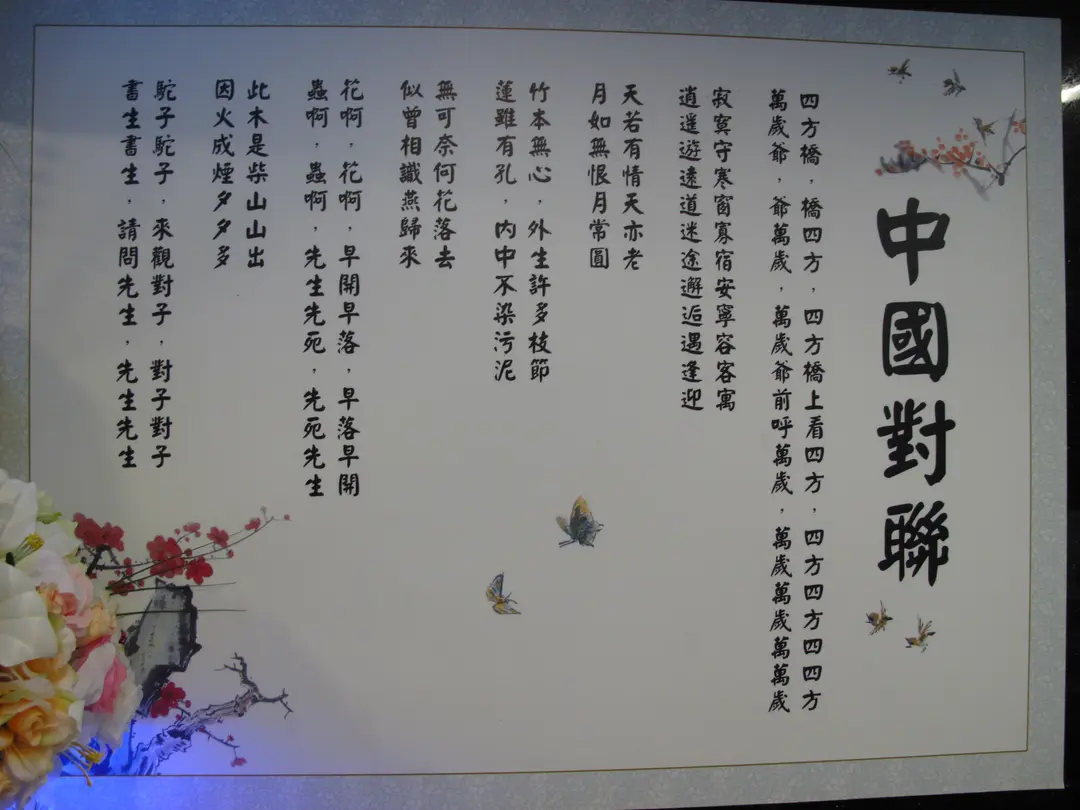 中國對聯
四方橋，橋四方，四方橋上看四方，四方四方四四方
萬歲爺，爺萬歲，萬歲爺前呼萬歲，萬歲萬萬萬萬歲
寂寞守寒窗寡宿安寧容客寓
逍遥遊遠道迷途邂逅遇逢迎
天若有情天亦老
月如無恨月常圓
竹本無心，外生許多枝節
蓮雖有孔，内中不染污泥
無可奈何花落去
似曾相識燕歸來
花啊，花啊，早開早落，早落早開
蟲啊，蟲啊，先生先死，先死先生
此木是柴山山出
因火成煙夕夕多
駝子駝子，來觀對子，對子對子
書生書生，請問先生，先生先生